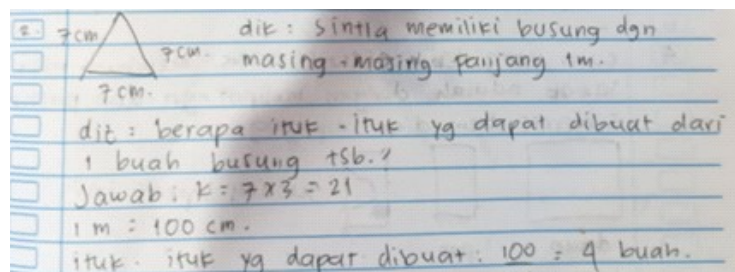 2. 7 cm
7 cm.
7 cm.
dik : Sintia memiliki busung dgn
masing-masing panjang 1m.
dit : berapa ituk-ituk yg dapat dibuat dari
1 buah busung tsb.?
Jawab : k = 7 x 3 = 21
1 m = 100 cm.
ituk-ituk yg dapat dibuat : 100 = 4 buah.